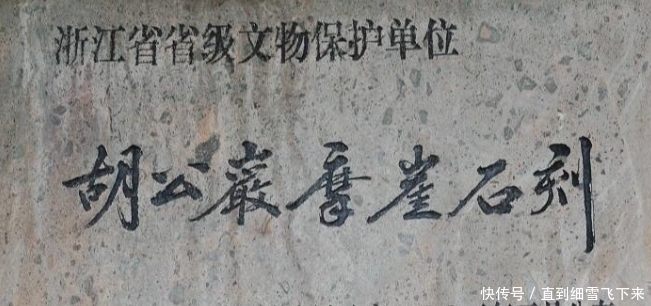 浙江省省级文物保护单位
胡公巖摩崖石刻
快传号/直到细雪飞下来